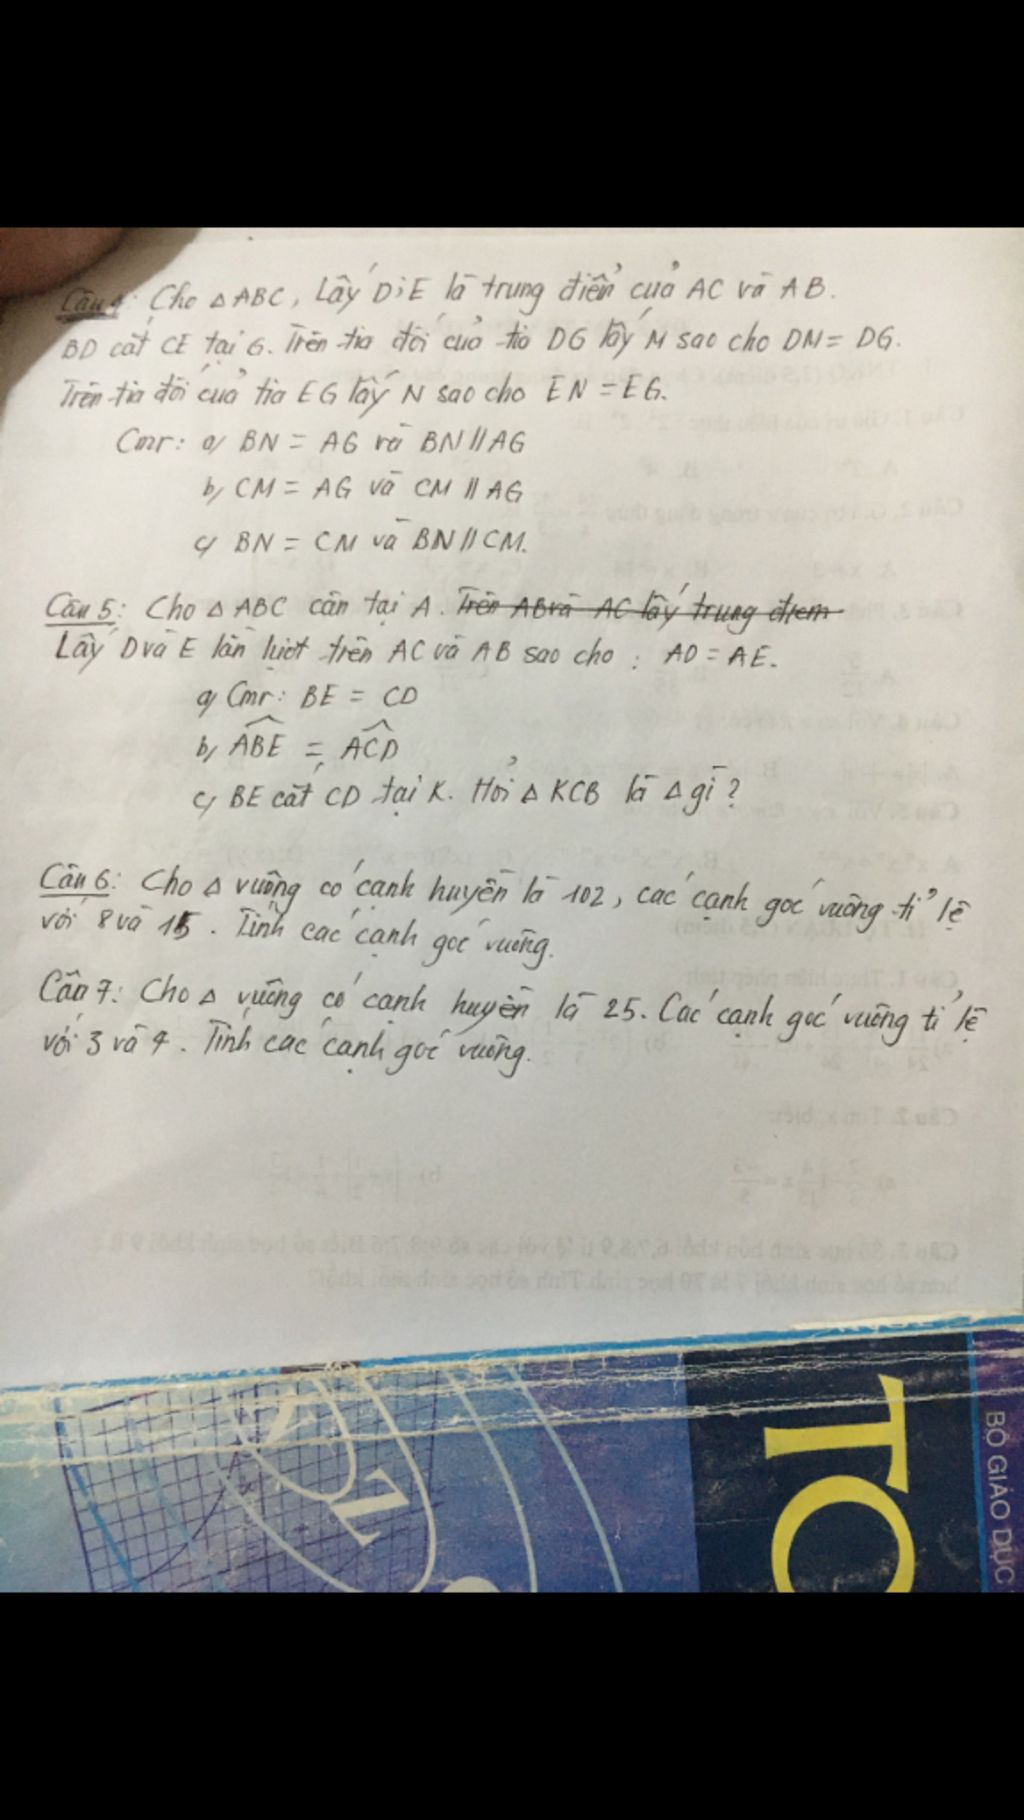 Câu 4: Cho △ ABC, Lấy D; E là trung điểm của AC và AB.
BD cắt CE tại G. Trên tia đối của tia DG lấy M sao cho DM = DG.
Trên tia đối của tia EG lấy N sao cho EN = EG.
Cmr: a) BN = AG và BN // AG
b) CM = AG và CM // AG
c) BN = CM và BN // CM.
Câu 5: Cho △ ABC cân tại A. Trên AB và AC lấy trung điểm
Lấy D và E lần lượt trên AC và AB sao cho : AD = AE.
a) Cmr: BE = CD
b) ABE = ACD
c) BE cắt CD tại K. Hỏi △ KCB là △ gì ?
Câu 6: Cho △ vuông có cạnh huyền là 102, các cạnh góc vuông tỉ lệ
với 8 và 15. Tính các cạnh góc vuông.
Câu 7: Cho △ vuông có cạnh huyền là 25. Các cạnh góc vuông tỉ lệ
với 3 và 4. Tính các cạnh góc vuông.
BỘ GIÁO DỤC
TO